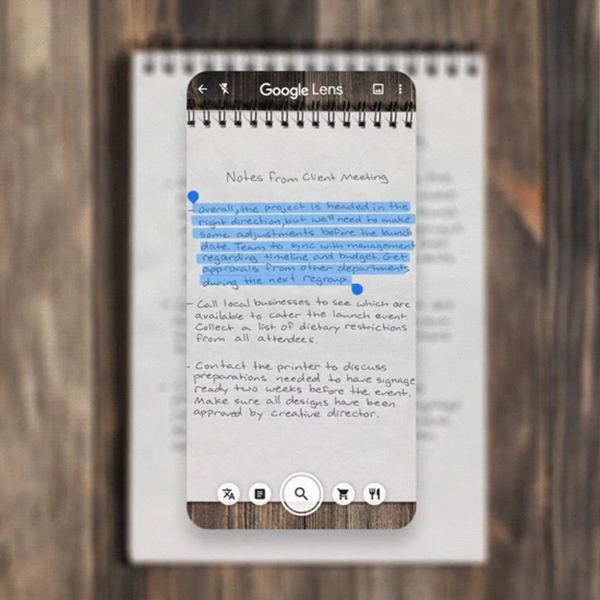 Google Lens
Notes from Client Meeting
- Overall, the project is headed in the
right direction, but we'll need to make
some adjustments before the launch
date. Team to sync with management
regarding timeline and budget. Get
approvals from other departments
during the next regroup.
- Call local businesses to see which are
available to cater the launch event.
Collect a list of dietary restrictions
from all attendees.
- Contact the printer to discuss
preparations needed to have signage
ready two weeks before the event.
Make sure all designs have been
approved by creative director.